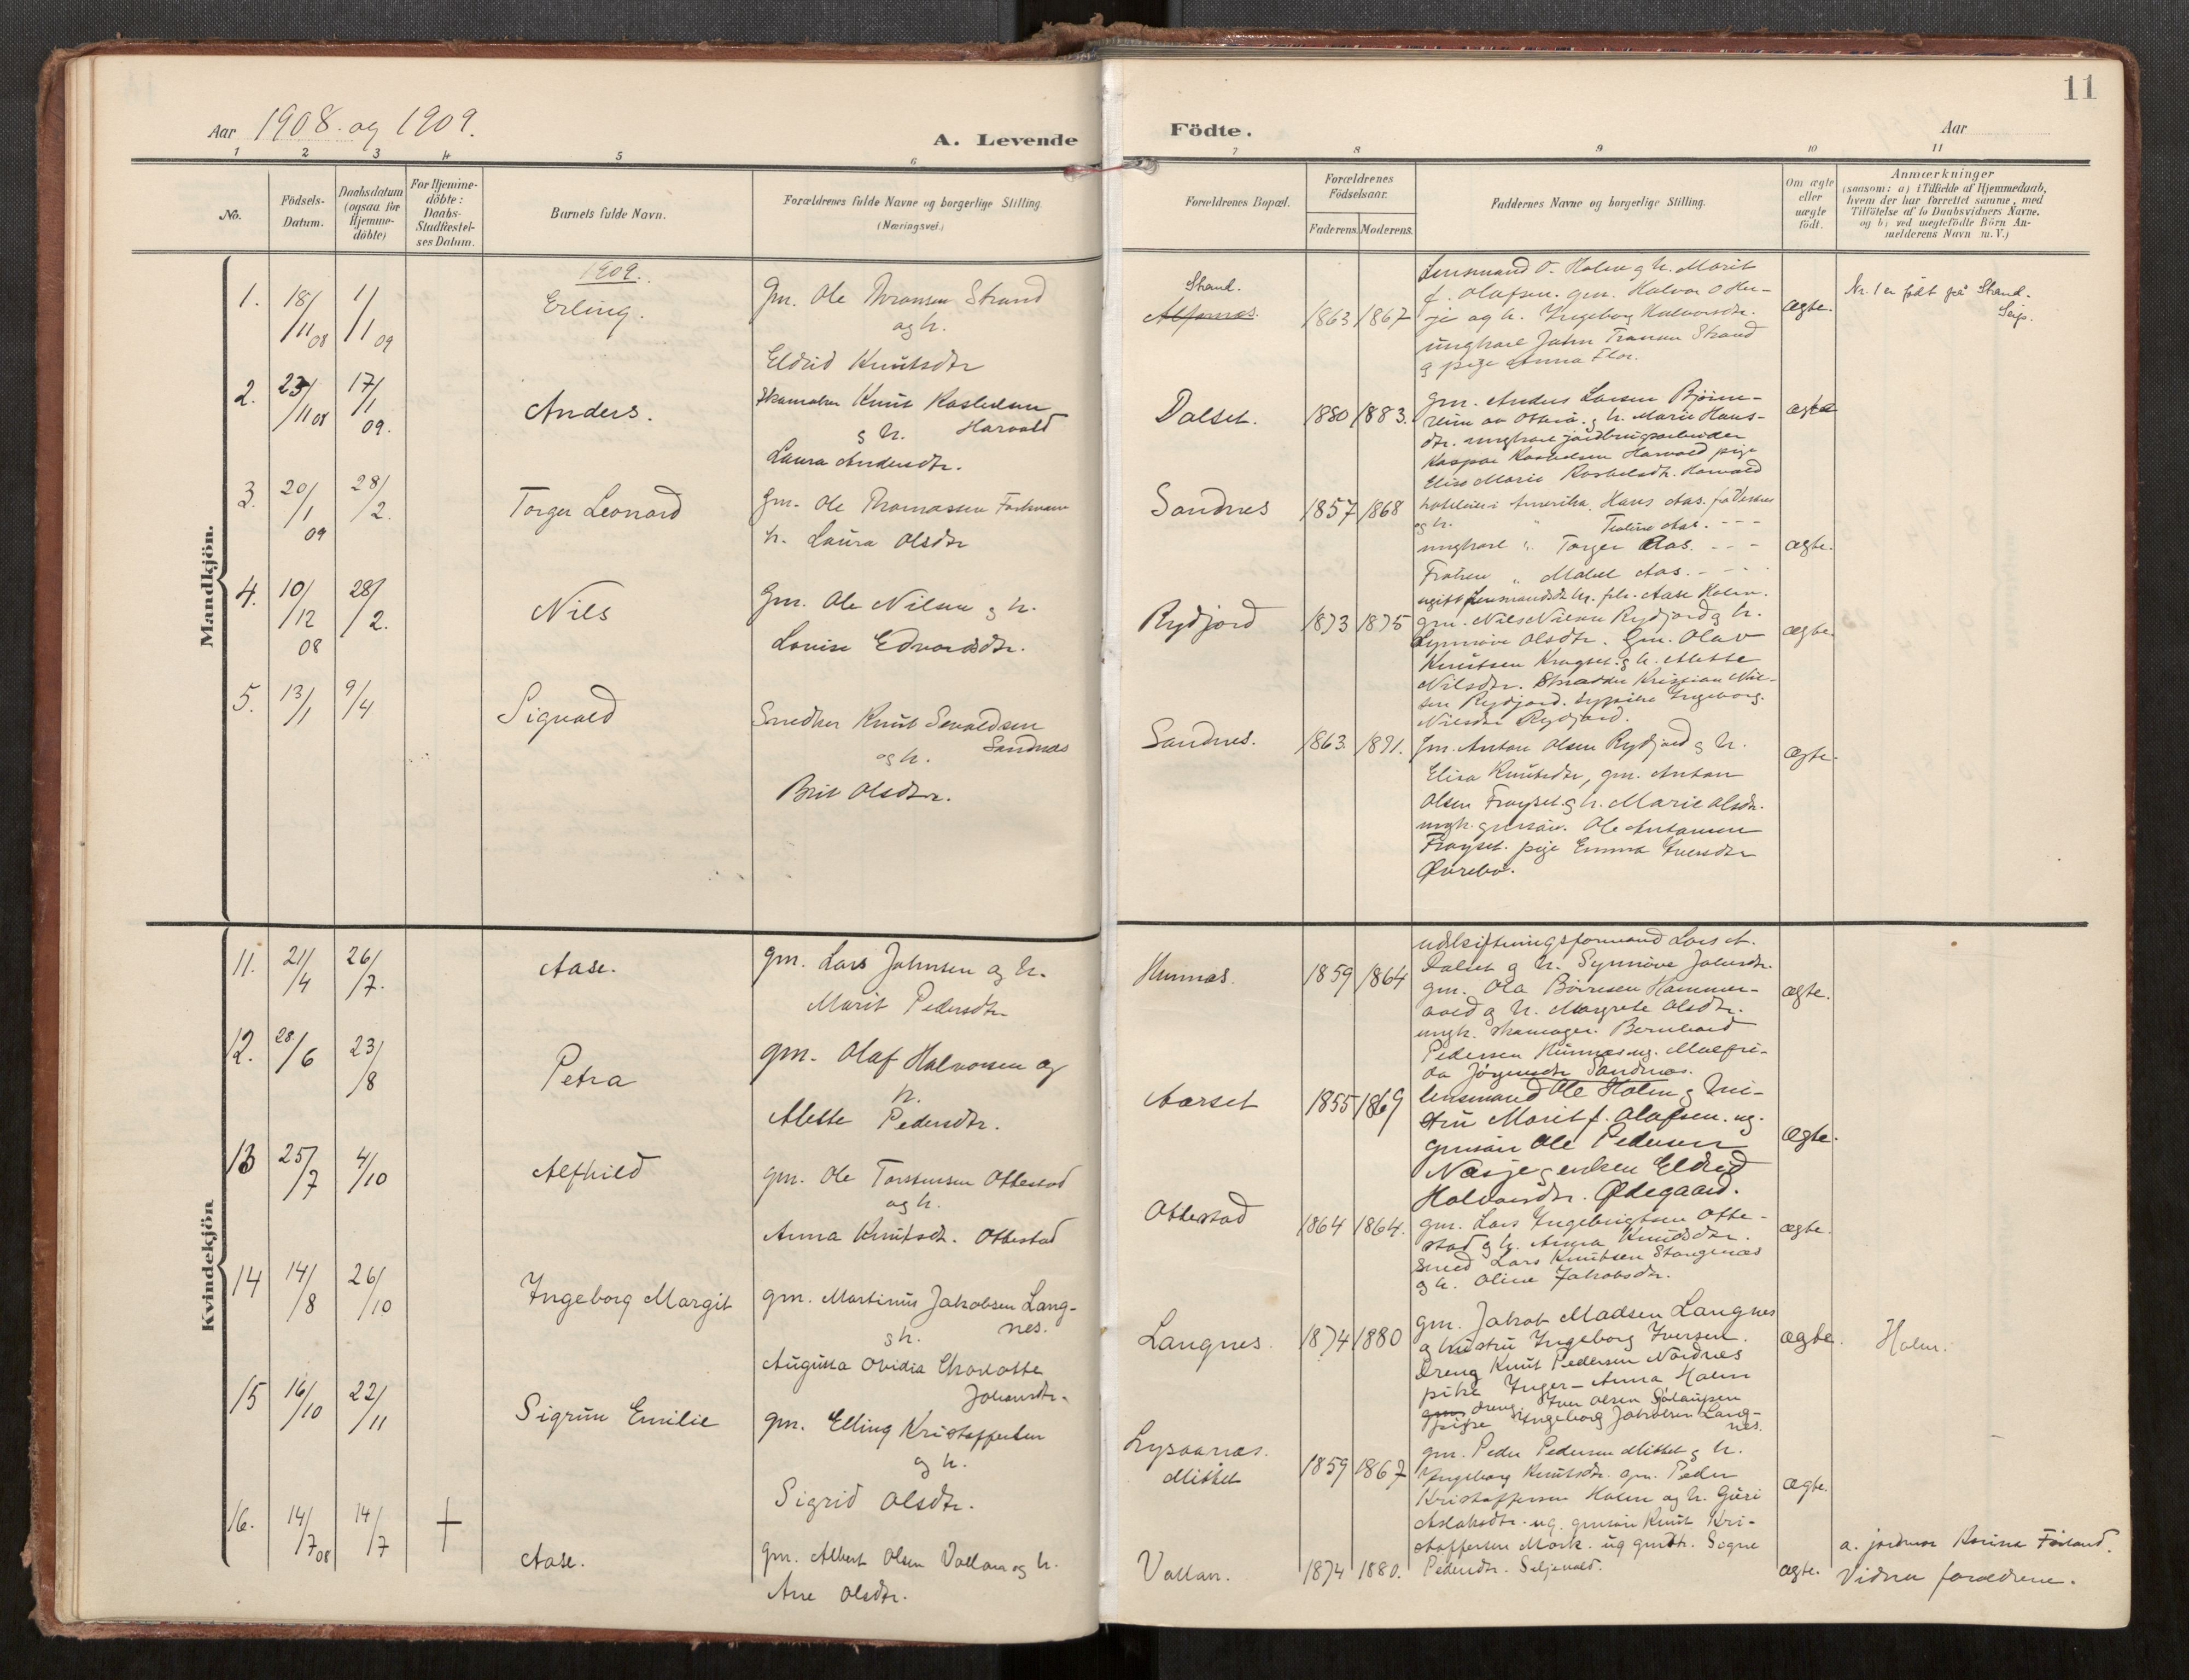 11
Aar 1908. og 1909.
A. Levende Födte.
Aar
1 2 3 4 5 6 7 8 9 10 11
No.
Födsels-
Datum.
Daabsdatum
(ogsaa for
Hjemme-
döbte)
For Hjemme-
döbte:
Daabs-
Stadfæstel-
ses Datum.
Barnets fulde Navn.
Forældrenes fulde Navne og borgerlige Stilling.
(Næringsvei.)
Forældrenes Bopæl.
Forældrenes
Födselsaar.
Faderens. Moderens.
Faddernes Navne og borgerlige Stilling.
Om ægte
eller
uægte
födt.
Anmærkninger
(saasom: a) i Tilfælde af Hjemmedaab,
hvem der har forrettet samme, med
Tilföielse af to Daabsvidners Navne.
og b) ved uægtefödte Börn An-
melderens Navn m. V.)
Mandkjön.
1909.
1. 18/11 08 1/1 09
Erling.
Gm. Ole Tronsen Strand
og h.
Eldrid Knutsdtr
Strand.
1863 1867
Lensmand O. Holm og h. Marit
f. Olafsen. gm. Halvor O
og h. Ingeborg Halvorsdtr.
ungkarl John Tronsen Strand
g pige Anna Flor.
ægte.
Nr. 1 er født på Strand.
Seip.
2. 23/11 08 17/1 09.
Anders.
Knut Rasmussen
g h. Harvold
Laura Andersdtr.
Dalset.
1880 1883.
gm. Anders Larsen Bjørne-
reim av Otterö. g h. Marie Hans-
dtr. ungkarl jordbrugsarbeider
Kaspar Harvold pige
Elise Marie Harvold
ægte
3. 20/1 09 28/2.
Torger Leonard
Gm. Ole Thomassen
h. Laura Olsdtr
Sandnes
1857 1868
i Amerika. Hans Aas.
og h. " Aas. - - -
ungkarl " Torger Aas. - - -
Frøken " Mabel Aas. - - -
Aase Holm.
ægte.
4. 10/12 08 28/2.
Nils
Gm. Ole Nilsen g h.
Louise Edvardsdtr.
Rydjord
1873 1875
gm. Nils Nilsen Rydjord g h.
Synnöve Olsdtr. Gm. Olav
Knutsen Kragset. g h. Mette
Nilsdtr. Skrædder Kristian Nil-
sen Rydjord. sypike Ingeborg
Nilsdtr Rydjord.
ægte.
5. 13/1 9/4
Sigvald
Snedker Knut Sevaldsen
Sandnes
og h.
Brit Olsdtr.
Sandnes.
1863. 1871.
Gm. Anton Olsen Rydjord g h.
Elisa Knutsdtr, gm. Anton
Olsen Frayset. g h. Marie Olsdtr.
ungk. gmsön. Ole Antonsen
Frayset. pige Emma Iversdtr
Øvrebö.
ægte.
Kvindekjön
11. 21/4 26/7.
Aase.
gm. Lars Johnsen og h.
Marit Pedersdtr
Hunnes.
1859 1864
udskiftningsformand Lars A.
Dalset g h. Synnöve Johnsdtr.
gm. Ola Börresen Hammer-
vold g h. Margrete Olsdtr.
ungk. skomager. Bernhard
Pedersen Hunnes ug. Malfri-
da Jörgensdtr Sandnes.
ægte.
12. 28/6 23/8
Petra
gm. Olaf Halvorsen og
h.
Mette Pedersdtr.
Aarset
1855 1869
lensmand Ole Holm g hu-
stru Marit f. Olafsen. ug.
gmsön Ole Pedersen
Næsje g enken Eldrid
Halvorsdtr. Ødegaard.
ægte.
13 25/7 4/10
Alfhild
gm. Ole Torstensen Ottestad
og h.
Anna Knutsdtr. Ottestad
Ottestad
1864 1864.
gm. Lars Ingebrigtsen Otte-
stad g h. Anna Knudsdtr.
Smed Lars Knutsen Stangenes
g h. Oline Jakobsdtr.
ægte.
14 14/8 26/10
Ingeborg Margit
gm. Martinus Jakobsen Lang-
nes.
g h.
Augusta Ovidia Charlotte
Johansdtr.
Langnes.
1874 1880
gm. Jakob Madsen Langnes
g hustru Ingeborg Iversen.
Dreng Knut Pedersen Nordnes
pike Inger-Anna Holm
dreng Iver Olsen
pige Ingeborg Jakobsen Lang-
nes.
ægte.
Holm.
15 16/10 22/11
Sigrun Emilie
gm. Elling Kristoffersen
og h.
Sigrid Olsdtr.
Mittet
1859 1867
gm. Peder Pedersen Mittet g h.
Ingeborg Knutsdtr. gm. Peder
Kristoffersen Holm og h. Guri
Aslaksdtr. ug. gmsön Knut Kri-
stoffersen Mork. ug gmdtr.
Pedersdtr. Seljevold.
ægte.
16. 14/7 08 14/7 +
Aase.
gm. Albert Olsen Vollan og h.
Ane Olsdtr.
Vollan.
1874 1880.
ægte.
a. jordmor
Vidner forældrene.